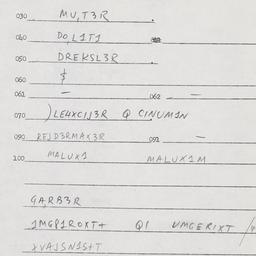 030 MU,T3R .
040 DO,L1T1
050 DREKSL3R .
060 $
061 — 062 —
070 )LEHXCIJ3R Q CINUM1N
090 REJD3RMAK3R 091 —
100 MALUX1 MALUX1M
GARB3R
1MGP1ROXT+ Q1 UMGERIXT
XVAJSN1S+T